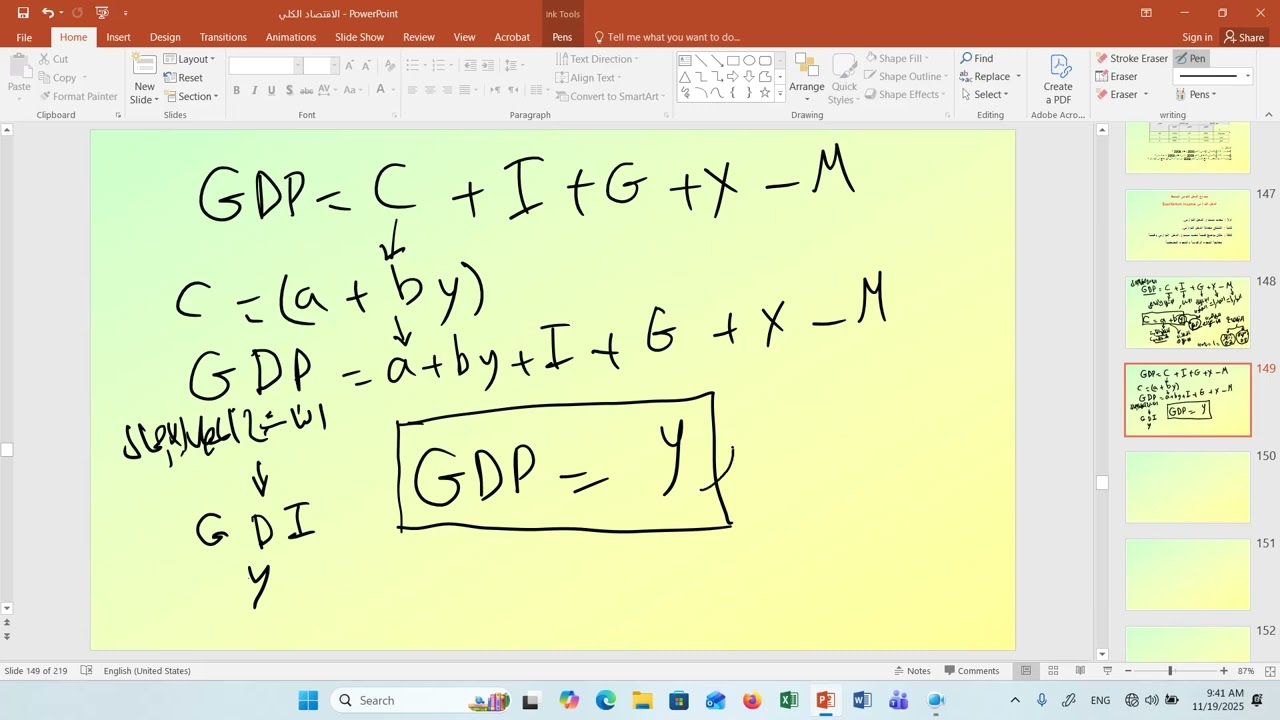 الاقتصاد الكلي - PowerPoint
Ink Tools
File Home Insert Design Transitions Animations Slide Show Review View Acrobat Pens Tell me what you want to do... Sign in Share
Paste Cut Copy Format Painter
Clipboard
New Slide Layout Reset Section
Slides
Font
Text Direction Align Text Convert to SmartArt
Paragraph
Arrange Quick Styles Shape Fill Shape Outline Shape Effects
Drawing
Find Replace Select
Editing
Create a PDF
Adobe Acro...
Stroke Eraser Eraser Eraser Pen Pens
writing
GDP = C + I + G + X - M
C = (a + by)
GDP = a + by + I + G + X - M
GDP = y
GDI
y
147
148
149
150
151
152
Slide 149 of 219 English (United States) Notes Comments 87%
Search ENG 9:41 AM
11/19/2025